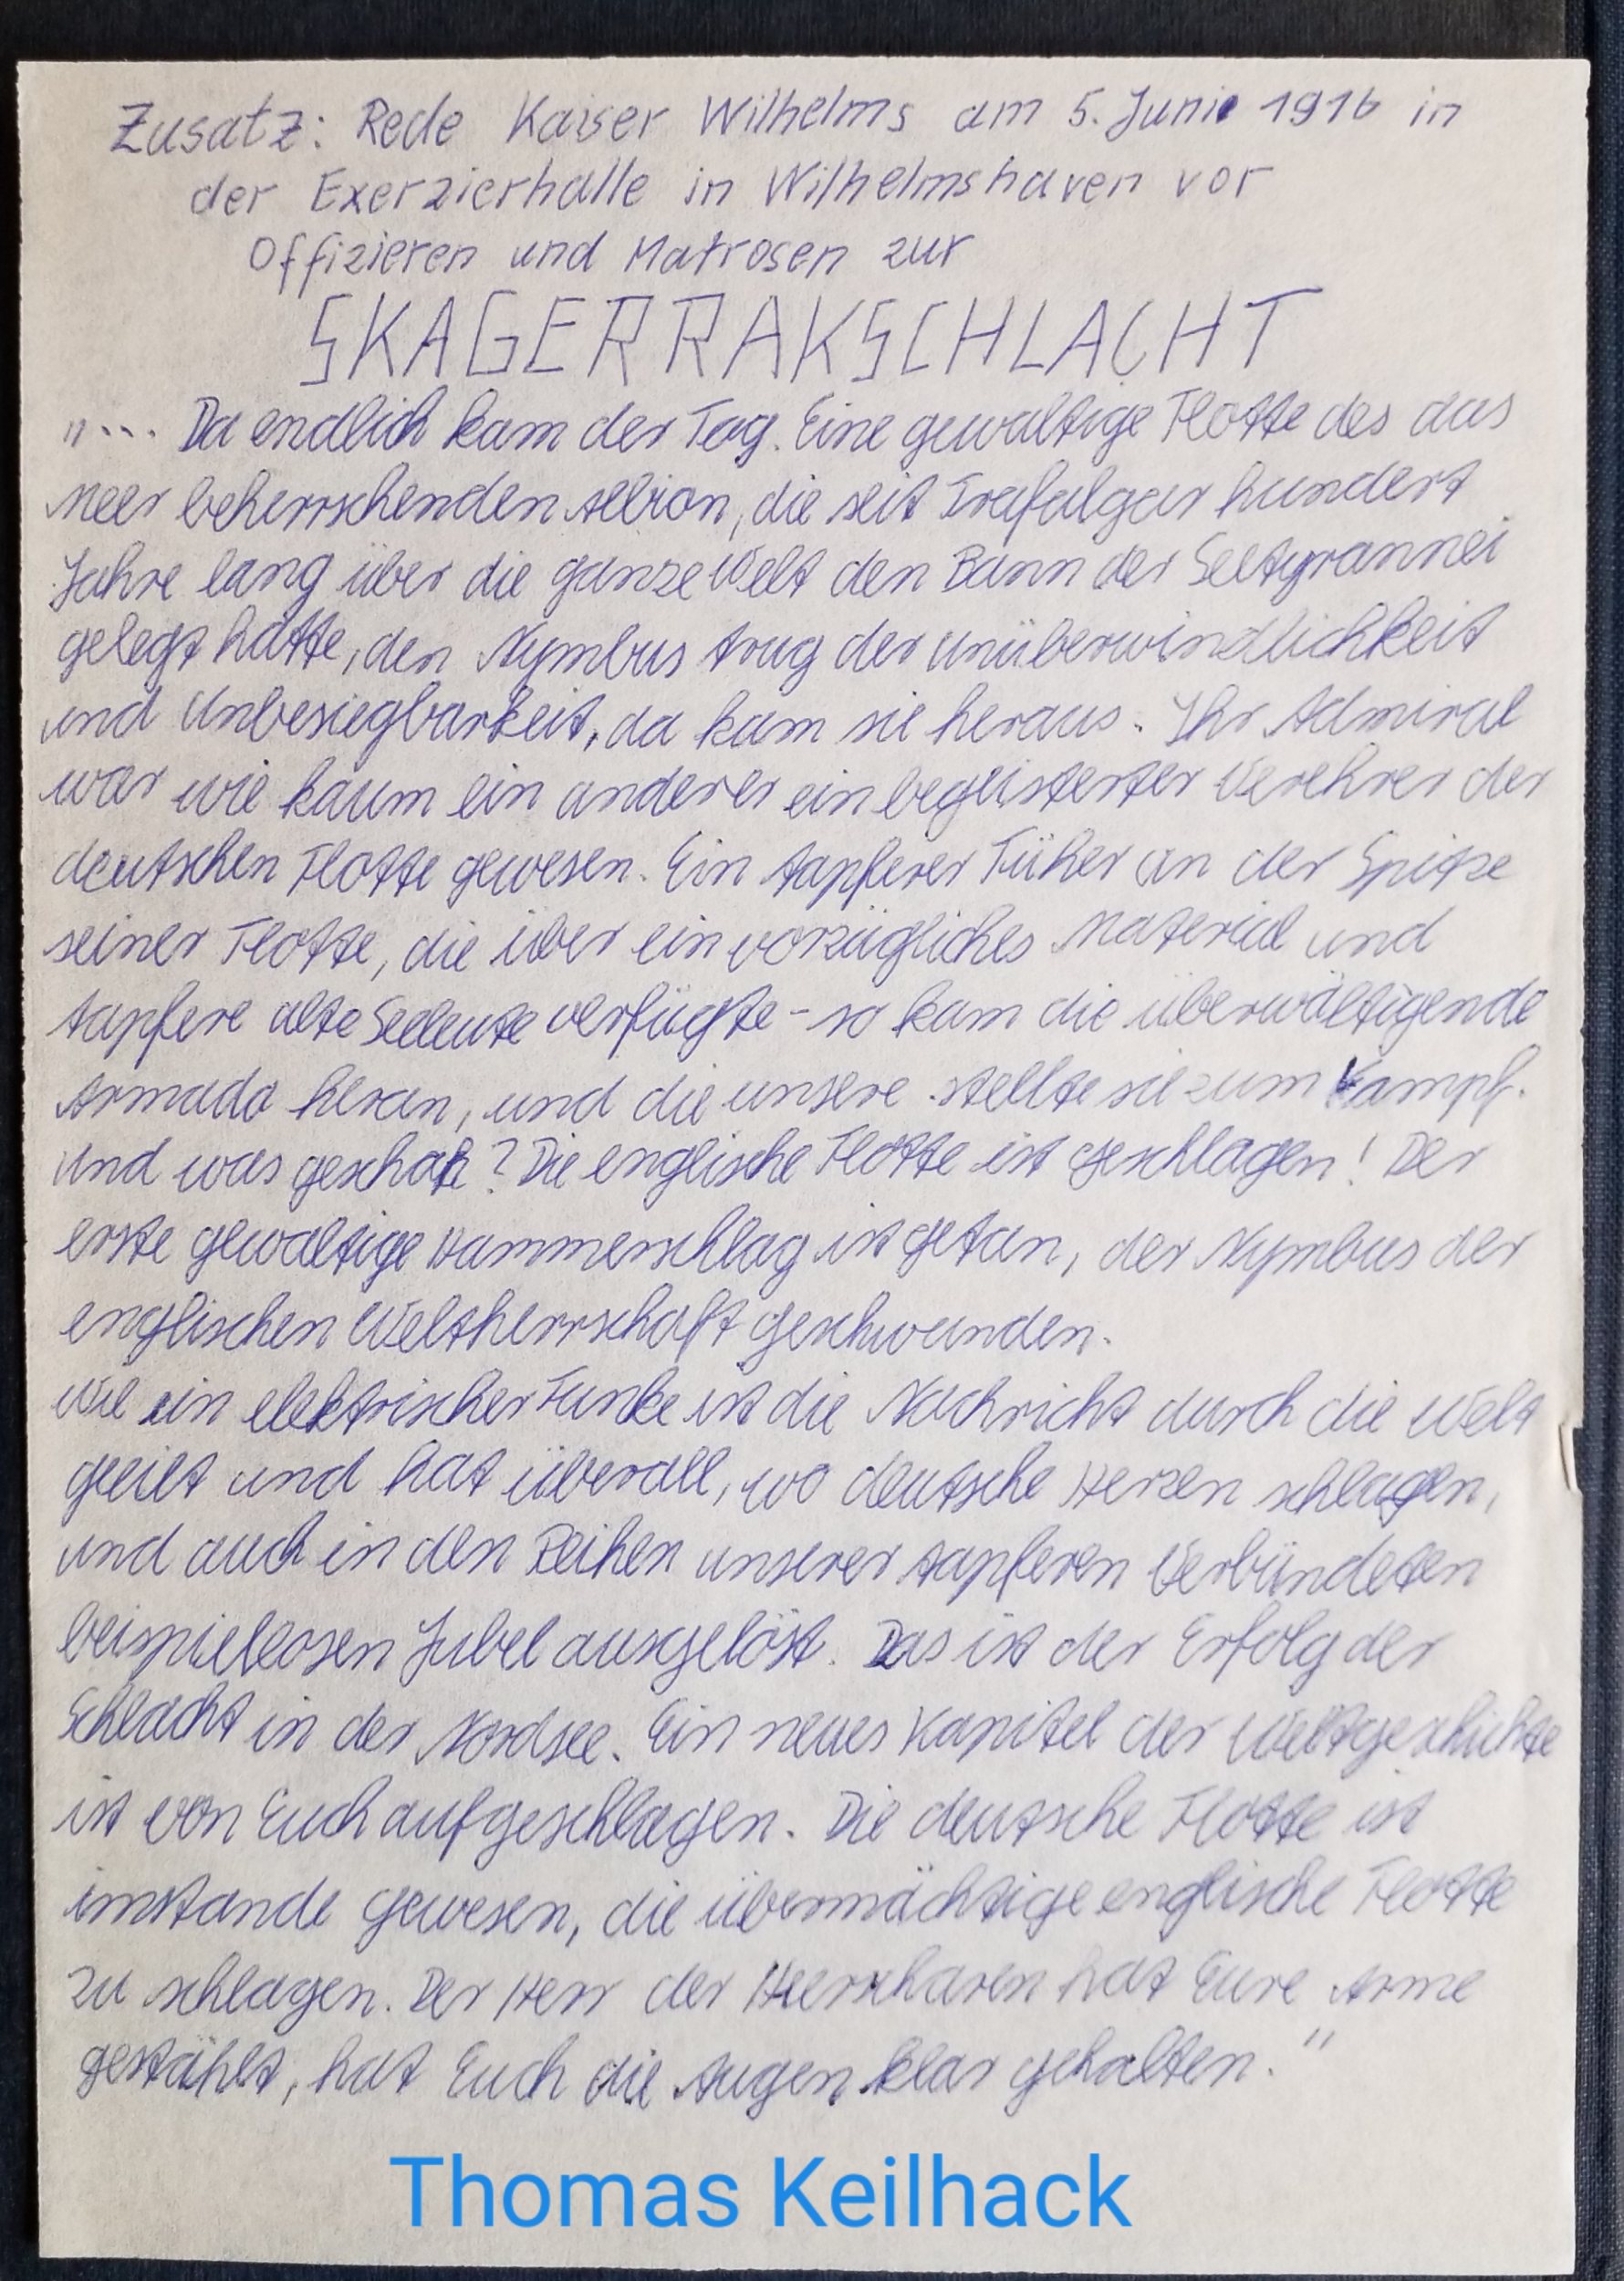 Zusatz: Rede Kaiser Wilhelms am 5. Juni 1916 in
der Exerzierhalle in Wilhelmshaven vor
Offizieren und Matrosen zur
SKAGERRAKSCHLACHT
"... Da endlich kam der Tag. Eine gewaltige Flotte des das
Meer beherrschenden Albion, die seit Trafalgar hundert
Jahre lang über die ganze Welt den Bann der Seetyrannei
gelegt hatte, den Nymbus trug der Unüberwindlichkeit
und Unbesiegbarkeit, da kam sie heraus. Ihr Admiral
war wie kaum ein anderer ein begeisterter Verehrer der
deutschen Flotte gewesen. Ein tapferer Füher an der Spitze
seiner Flotte, die über ein vorzügliches Material und
tapfere alte Seeleute verfügte - so kam die überwältigende
Armada heran, und die unsere stellte sie zum Kampf.
Und was geschah? Die englische Flotte ist geschlagen! Der
erste gewaltige Hammerschlag ist getan, der Nymbus der
englischen Weltherrschaft geschwunden.
Wie ein elektrischer Funke ist die Nachricht durch die Welt
geeilt und hat überall, wo deutsche Herzen schlagen,
und auch in den Reihen unserer tapferen Verbündeten
beispiellosen Jubel ausgelöst. Das ist der Erfolg der
Schlacht in der Nordsee. Ein neues Kapitel der Weltgeschichte
ist von Euch aufgeschlagen. Die deutsche Flotte ist
imstande gewesen, die übermächtige englische Flotte
zu schlagen. Der Herr der Heerscharen hat Eure Arme
gestählt, hat Euch die Augen klar gehalten."
Thomas Keilhack